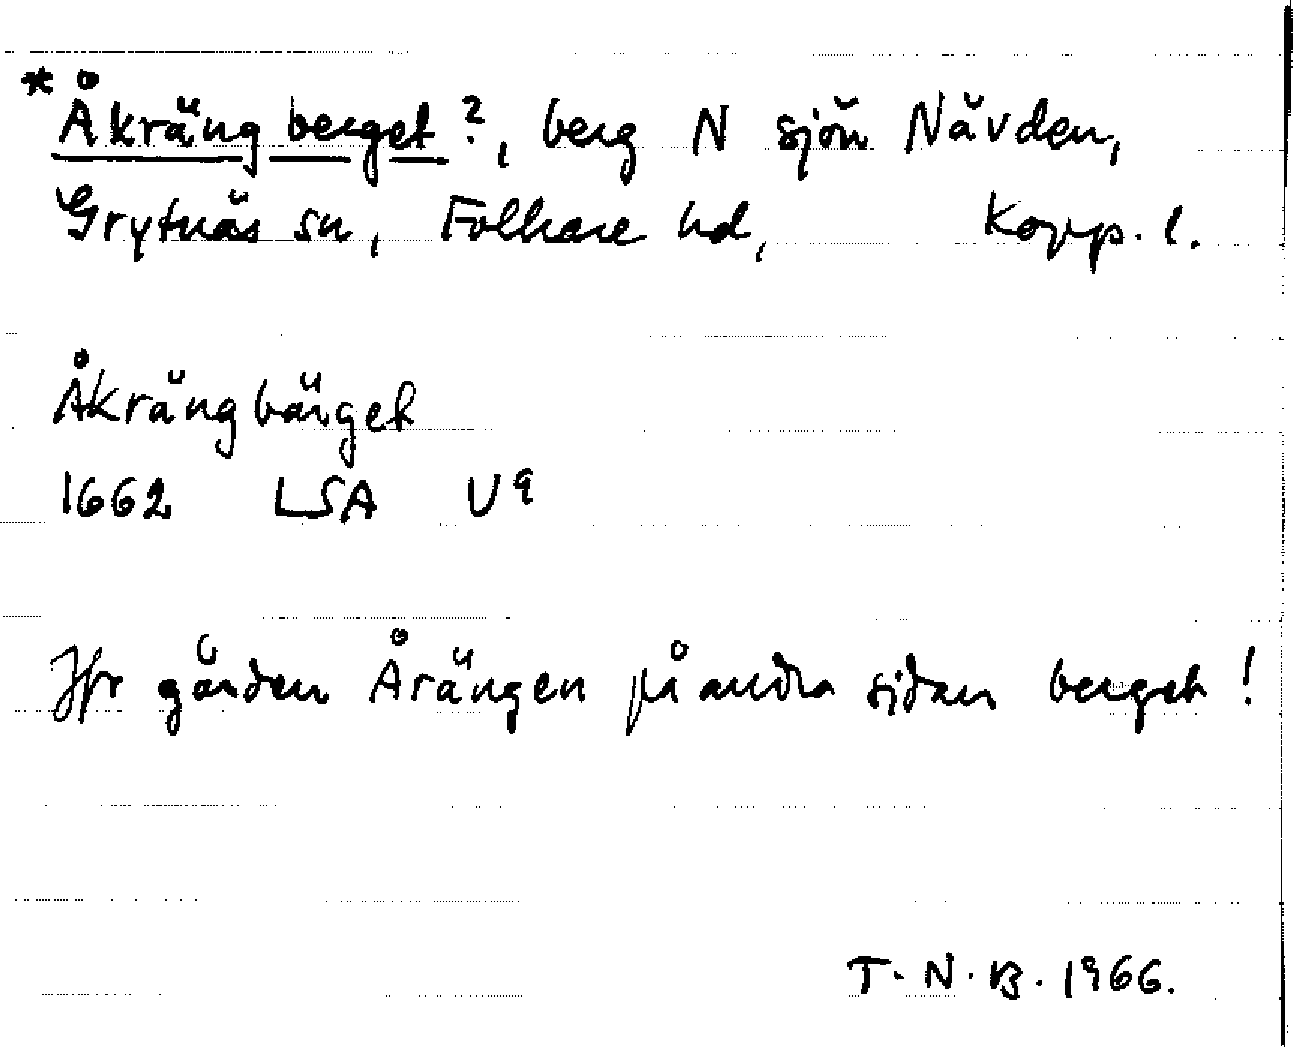 *Åkrängberget?, berg N sjön Nävden,
Grytnäs sn, Folkare hd, Kopp. l.
Åkrängbärget
1662 LSA U9
Jfr gården Årängen på andra sidan berget!
T.N.B. 1966.